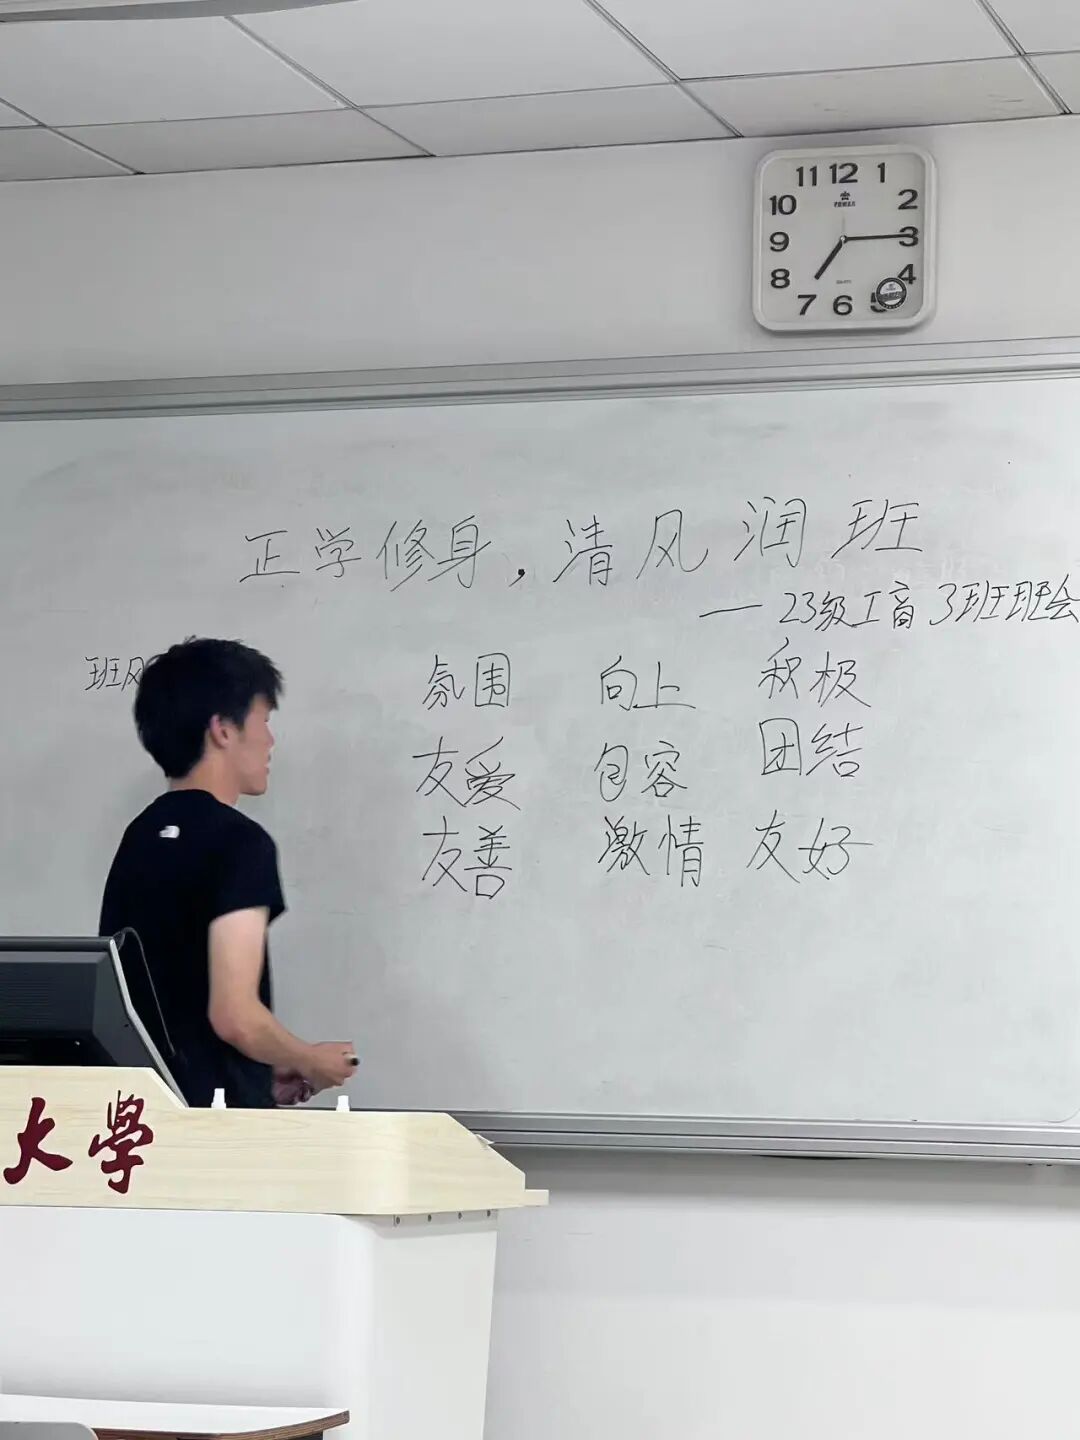 11 12 1
10 2
9 3
8 4
7 6
正学修身，清风润班
— 23级工商3班班会
班风
氛围 向上 积极
友爱 包容 团结
友善 激情 友好
大學